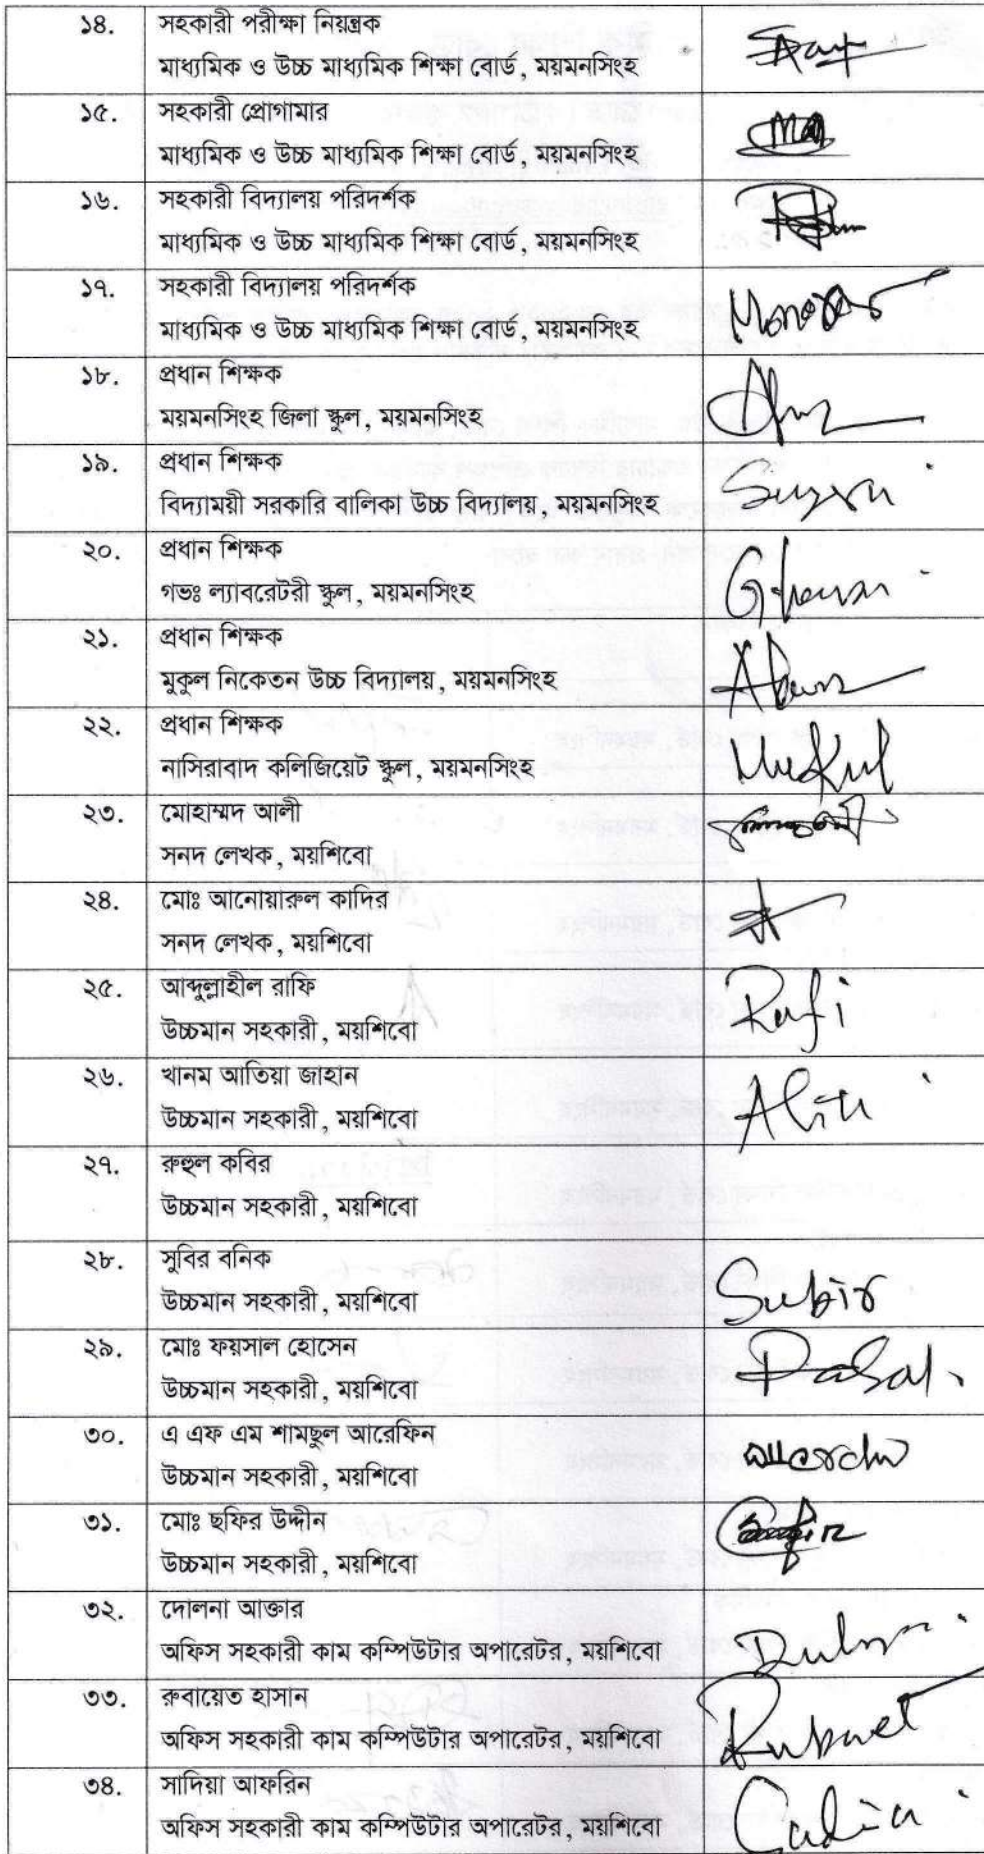 ১৪. সহকারী পরীক্ষা নিয়ন্ত্রক
মাধ্যমিক ও উচ্চ মাধ্যমিক শিক্ষা বোর্ড, ময়মনসিংহ
১৫. সহকারী প্রোগামার
মাধ্যমিক ও উচ্চ মাধ্যমিক শিক্ষা বোর্ড, ময়মনসিংহ
১৬. সহকারী বিদ্যালয় পরিদর্শক
মাধ্যমিক ও উচ্চ মাধ্যমিক শিক্ষা বোর্ড, ময়মনসিংহ
১৭. সহকারী বিদ্যালয় পরিদর্শক
মাধ্যমিক ও উচ্চ মাধ্যমিক শিক্ষা বোর্ড, ময়মনসিংহ
১৮. প্রধান শিক্ষক
ময়মনসিংহ জিলা স্কুল, ময়মনসিংহ
১৯. প্রধান শিক্ষক
বিদ্যাময়ী সরকারি বালিকা উচ্চ বিদ্যালয়, ময়মনসিংহ
২০. প্রধান শিক্ষক
গভঃ ল্যাবরেটরী স্কুল, ময়মনসিংহ
২১. প্রধান শিক্ষক
মুকুল নিকেতন উচ্চ বিদ্যালয়, ময়মনসিংহ
২২. প্রধান শিক্ষক
নাসিরাবাদ কলিজিয়েট স্কুল, ময়মনসিংহ
২৩. মোহাম্মদ আলী
সনদ লেখক, ময়শিবো
২৪. মোঃ আনোয়ারুল কাদির
সনদ লেখক, ময়শিবো
২৫. আব্দুল্লাহীল রাফি
উচ্চমান সহকারী, ময়শিবো Rafi
২৬. খানম আতিয়া জাহান
উচ্চমান সহকারী, ময়শিবো
২৭. রুহুল কবির
উচ্চমান সহকারী, ময়শিবো
২৮. সুবির বনিক
উচ্চমান সহকারী, ময়শিবো Subir
২৯. মোঃ ফয়সাল হোসেন
উচ্চমান সহকারী, ময়শিবো
৩০. এ এফ এম শামছুল আরেফিন
উচ্চমান সহকারী, ময়শিবো
৩১. মোঃ ছফির উদ্দীন
উচ্চমান সহকারী, ময়শিবো
৩২. দোলনা আক্তার
অফিস সহকারী কাম কম্পিউটার অপারেটর, ময়শিবো
৩৩. রুবায়েত হাসান
অফিস সহকারী কাম কম্পিউটার অপারেটর, ময়শিবো
৩৪. সাদিয়া আফরিন
অফিস সহকারী কাম কম্পিউটার অপারেটর, ময়শিবো